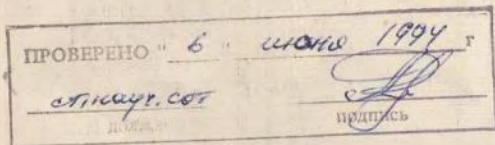 ПРОВЕРЕНО " 6 " июня 1994 г
ст.науч.сот
должн подпись